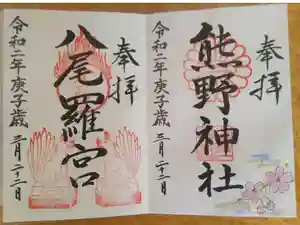 奉拝
熊野神社
令和二年庚子歳
三月二十二日
奉拝
八尾羅宮
令和二年庚子歳
三月二十二日